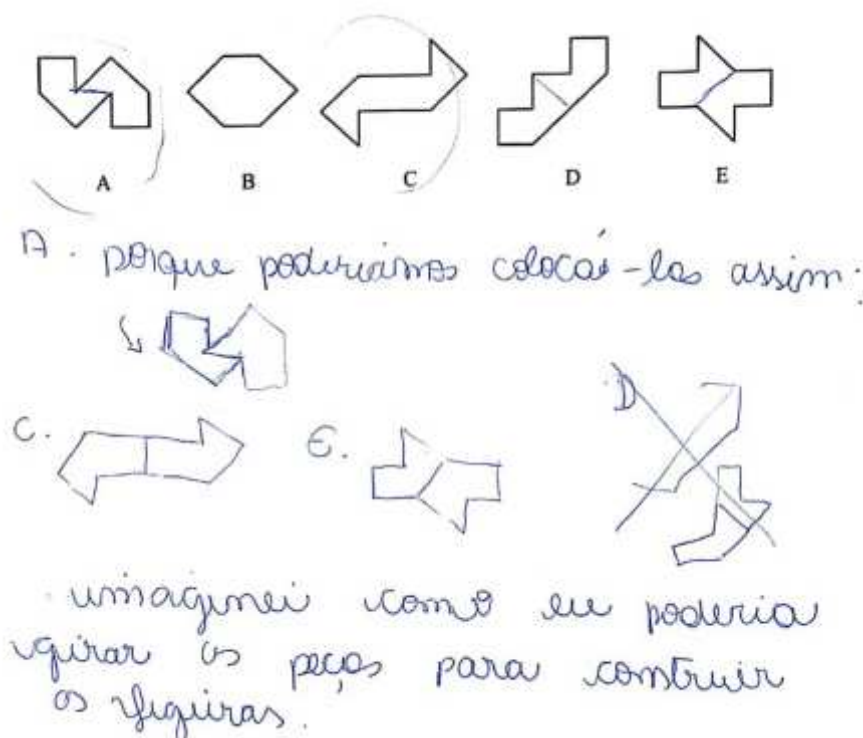 A B C D E
A. porque poderiamos colocá-las assim:
C. E. D
imaginei como eu poderia
girar as peças para construir
as figuras.